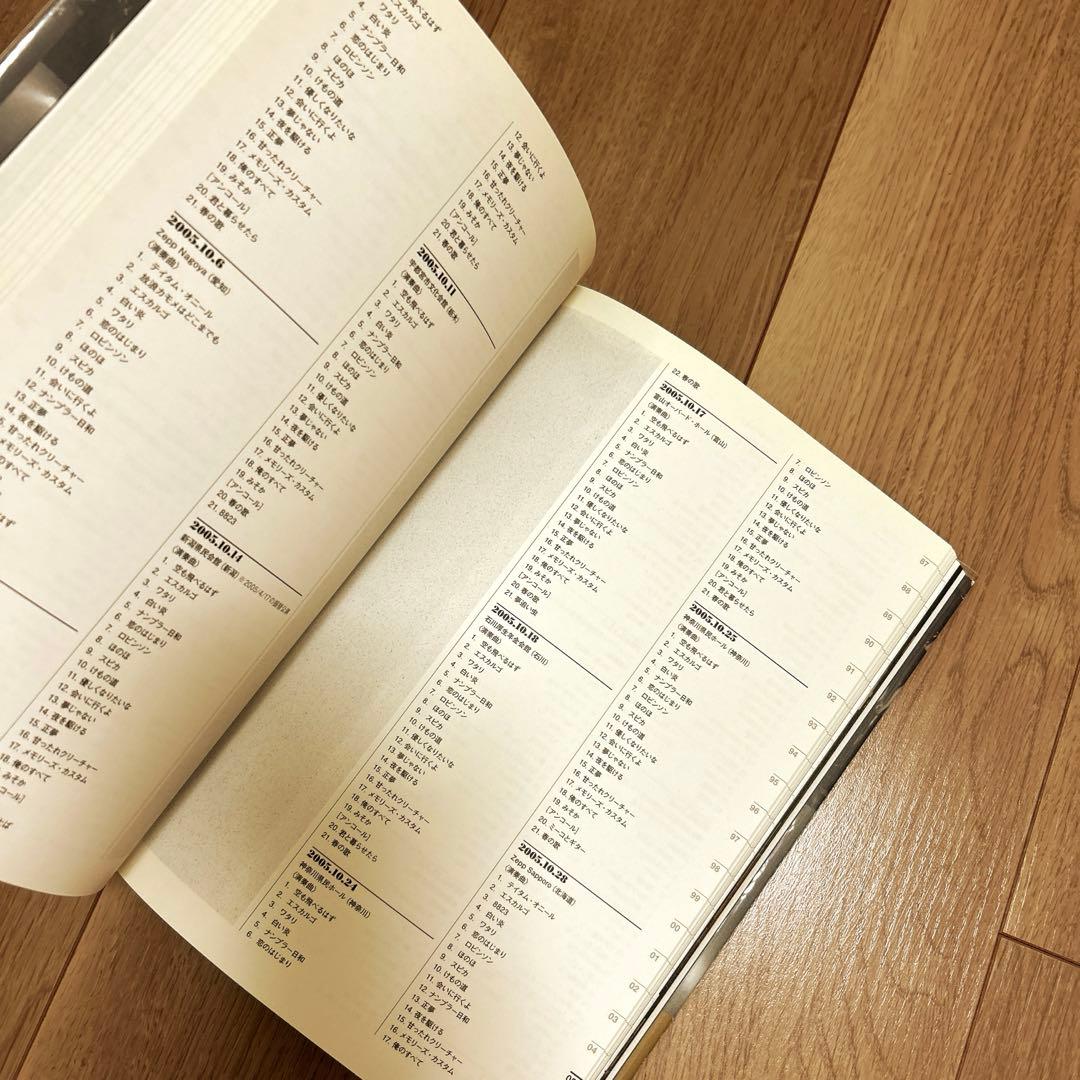 飛べるはず
エスカルゴ
4. ワタリ
5. 白い炎
6. ナンプラー日和
7. 恋のはじまり
8. ロビンソン
9. ほのほ
10. スピカ
11. けもの道
12. 優しくなりたいな
13. 会いに行くよ
14. 夢じゃない
15. 夜を駆ける
16. 正夢
17. 甘ったれクリーチャー
18. メモリーズ・カスタム
19. 俺のすべて
みそか
[アンコール]
20. 君と暮らせたら
21. 春の歌
2005.10.6
Zepp Nagoya (愛知)
〈演奏曲〉
1. テイタム・オニール
2. 放浪カモメはどこまでも
3. エスカルゴ
4. 白い炎
5. ワタリ
6. 恋のはじまり
7. ロビンソン
8. ほのほ
9. スピカ
10. けもの道
11. 会いに行くよ
12. ナンプラー日和
13. 正夢
14. 夜を駆ける
甘ったれクリーチャー
メモリーズ・カスタム
のすべて
12. 会いに行くよ
13. 夢じゃない
14. 夜を駆ける
15. 正夢
16. 甘ったれクリーチャー
17. メモリーズ・カスタム
18. 俺のすべて
19. みそか
[アンコール]
20. 君と暮らせたら
21. 春の歌
2005.10.11
宇都宮市文化会館 (栃木)
〈演奏曲〉
1. 空も飛べるはず
2. エスカルゴ
3. ワタリ
4. 白い炎
5. ナンプラー日和
6. 恋のはじまり
7. ロビンソン
8. ほのほ
9. スピカ
10. けもの道
11. 優しくなりたいな
12. 会いに行くよ
13. 夢じゃない
14. 夜を駆ける
15. 正夢
16. 甘ったれクリーチャー
17. メモリーズ・カスタム
18. 俺のすべて
19. みそか
[アンコール]
20. 春の歌
21. 8823
2005.10.14
新潟県民会館 (新潟) ※2005/4/17の振替公演
〈演奏曲〉
1. 空も飛べるはず
2. エスカルゴ
3. ワタリ
4. 白い炎
5. ナンプラー日和
6. 恋のはじまり
7. ロビンソン
8. ほのほ
9. スピカ
10. けもの道
11. 優しくなりたいな
12. 会いに行くよ
13. 夢じゃない
14. 夜を駆ける
15. 正夢
16. 甘ったれクリーチャー
17. メモリーズ・カスタム
18. 俺のすべて
みそか
22. 春の歌
2005.10.17
富山オーバード・ホール (富山)
〈演奏曲〉
1. 空も飛べるはず
2. エスカルゴ
3. ワタリ
4. 白い炎
5. ナンプラー日和
6. 恋のはじまり
7. ロビンソン
8. ほのほ
9. スピカ
10. けもの道
11. 優しくなりたいな
12. 会いに行くよ
13. 夢じゃない
14. 夜を駆ける
15. 正夢
16. 甘ったれクリーチャー
17. メモリーズ・カスタム
18. 俺のすべて
19. みそか
[アンコール]
20. 春の歌
21. 夢追い虫
2005.10.18
石川厚生年金会館 (石川)
〈演奏曲〉
1. 空も飛べるはず
2. エスカルゴ
3. ワタリ
4. 白い炎
5. ナンプラー日和
6. 恋のはじまり
7. ロビンソン
8. ほのほ
9. スピカ
10. けもの道
11. 優しくなりたいな
12. 会いに行くよ
13. 夢じゃない
14. 夜を駆ける
15. 正夢
16. 甘ったれクリーチャー
17. メモリーズ・カスタム
18. 俺のすべて
19. みそか
[アンコール]
20. 君と暮らせたら
21. 春の歌
2005.10.24
神奈川県民ホール (神奈川)
〈演奏曲〉
1. 空も飛べるはず
2. エスカルゴ
3. ワタリ
4. 白い炎
5. ナンプラー日和
6. 恋のはじまり
7. ロビンソン
8. ほのほ
9. スピカ
10. けもの道
11. 優しくなりたいな
12. 会いに行くよ
13. 夢じゃない
14. 夜を駆ける
15. 正夢
16. 甘ったれクリーチャー
17. メモリーズ・カスタム
18. 俺のすべて
19. みそか
[アンコール]
20. 君と暮らせたら
21. 春の歌
2005.10.25
神奈川県民ホール (神奈川)
〈演奏曲〉
1. 空も飛べるはず
2. エスカルゴ
3. ワタリ
4. 白い炎
5. ナンプラー日和
6. 恋のはじまり
7. ロビンソン
8. ほのほ
9. スピカ
10. けもの道
11. 優しくなりたいな
12. 会いに行くよ
13. 夢じゃない
14. 夜を駆ける
15. 正夢
16. 甘ったれクリーチャー
17. メモリーズ・カスタム
18. 俺のすべて
19. みそか
[アンコール]
20. ミーコとギター
21. 春の歌
2005.10.28
Zepp Sapporo (北海道)
〈演奏曲〉
1. テイタム・オニール
2. エスカルゴ
3. 8823
4. 白い炎
5. ワタリ
6. 恋のはじまり
7. ロビンソン
8. ほのほ
9. スピカ
10. けもの道
11. 会いに行くよ
12. ナンプラー日和
13. 正夢
14. 夜を駆ける
15. 甘ったれクリーチャー
16. メモリーズ・カスタム
17. 俺のすべて
87
88
89
90
91
92
93
94
95
96
97
98
99
00
01
02
03
04
05